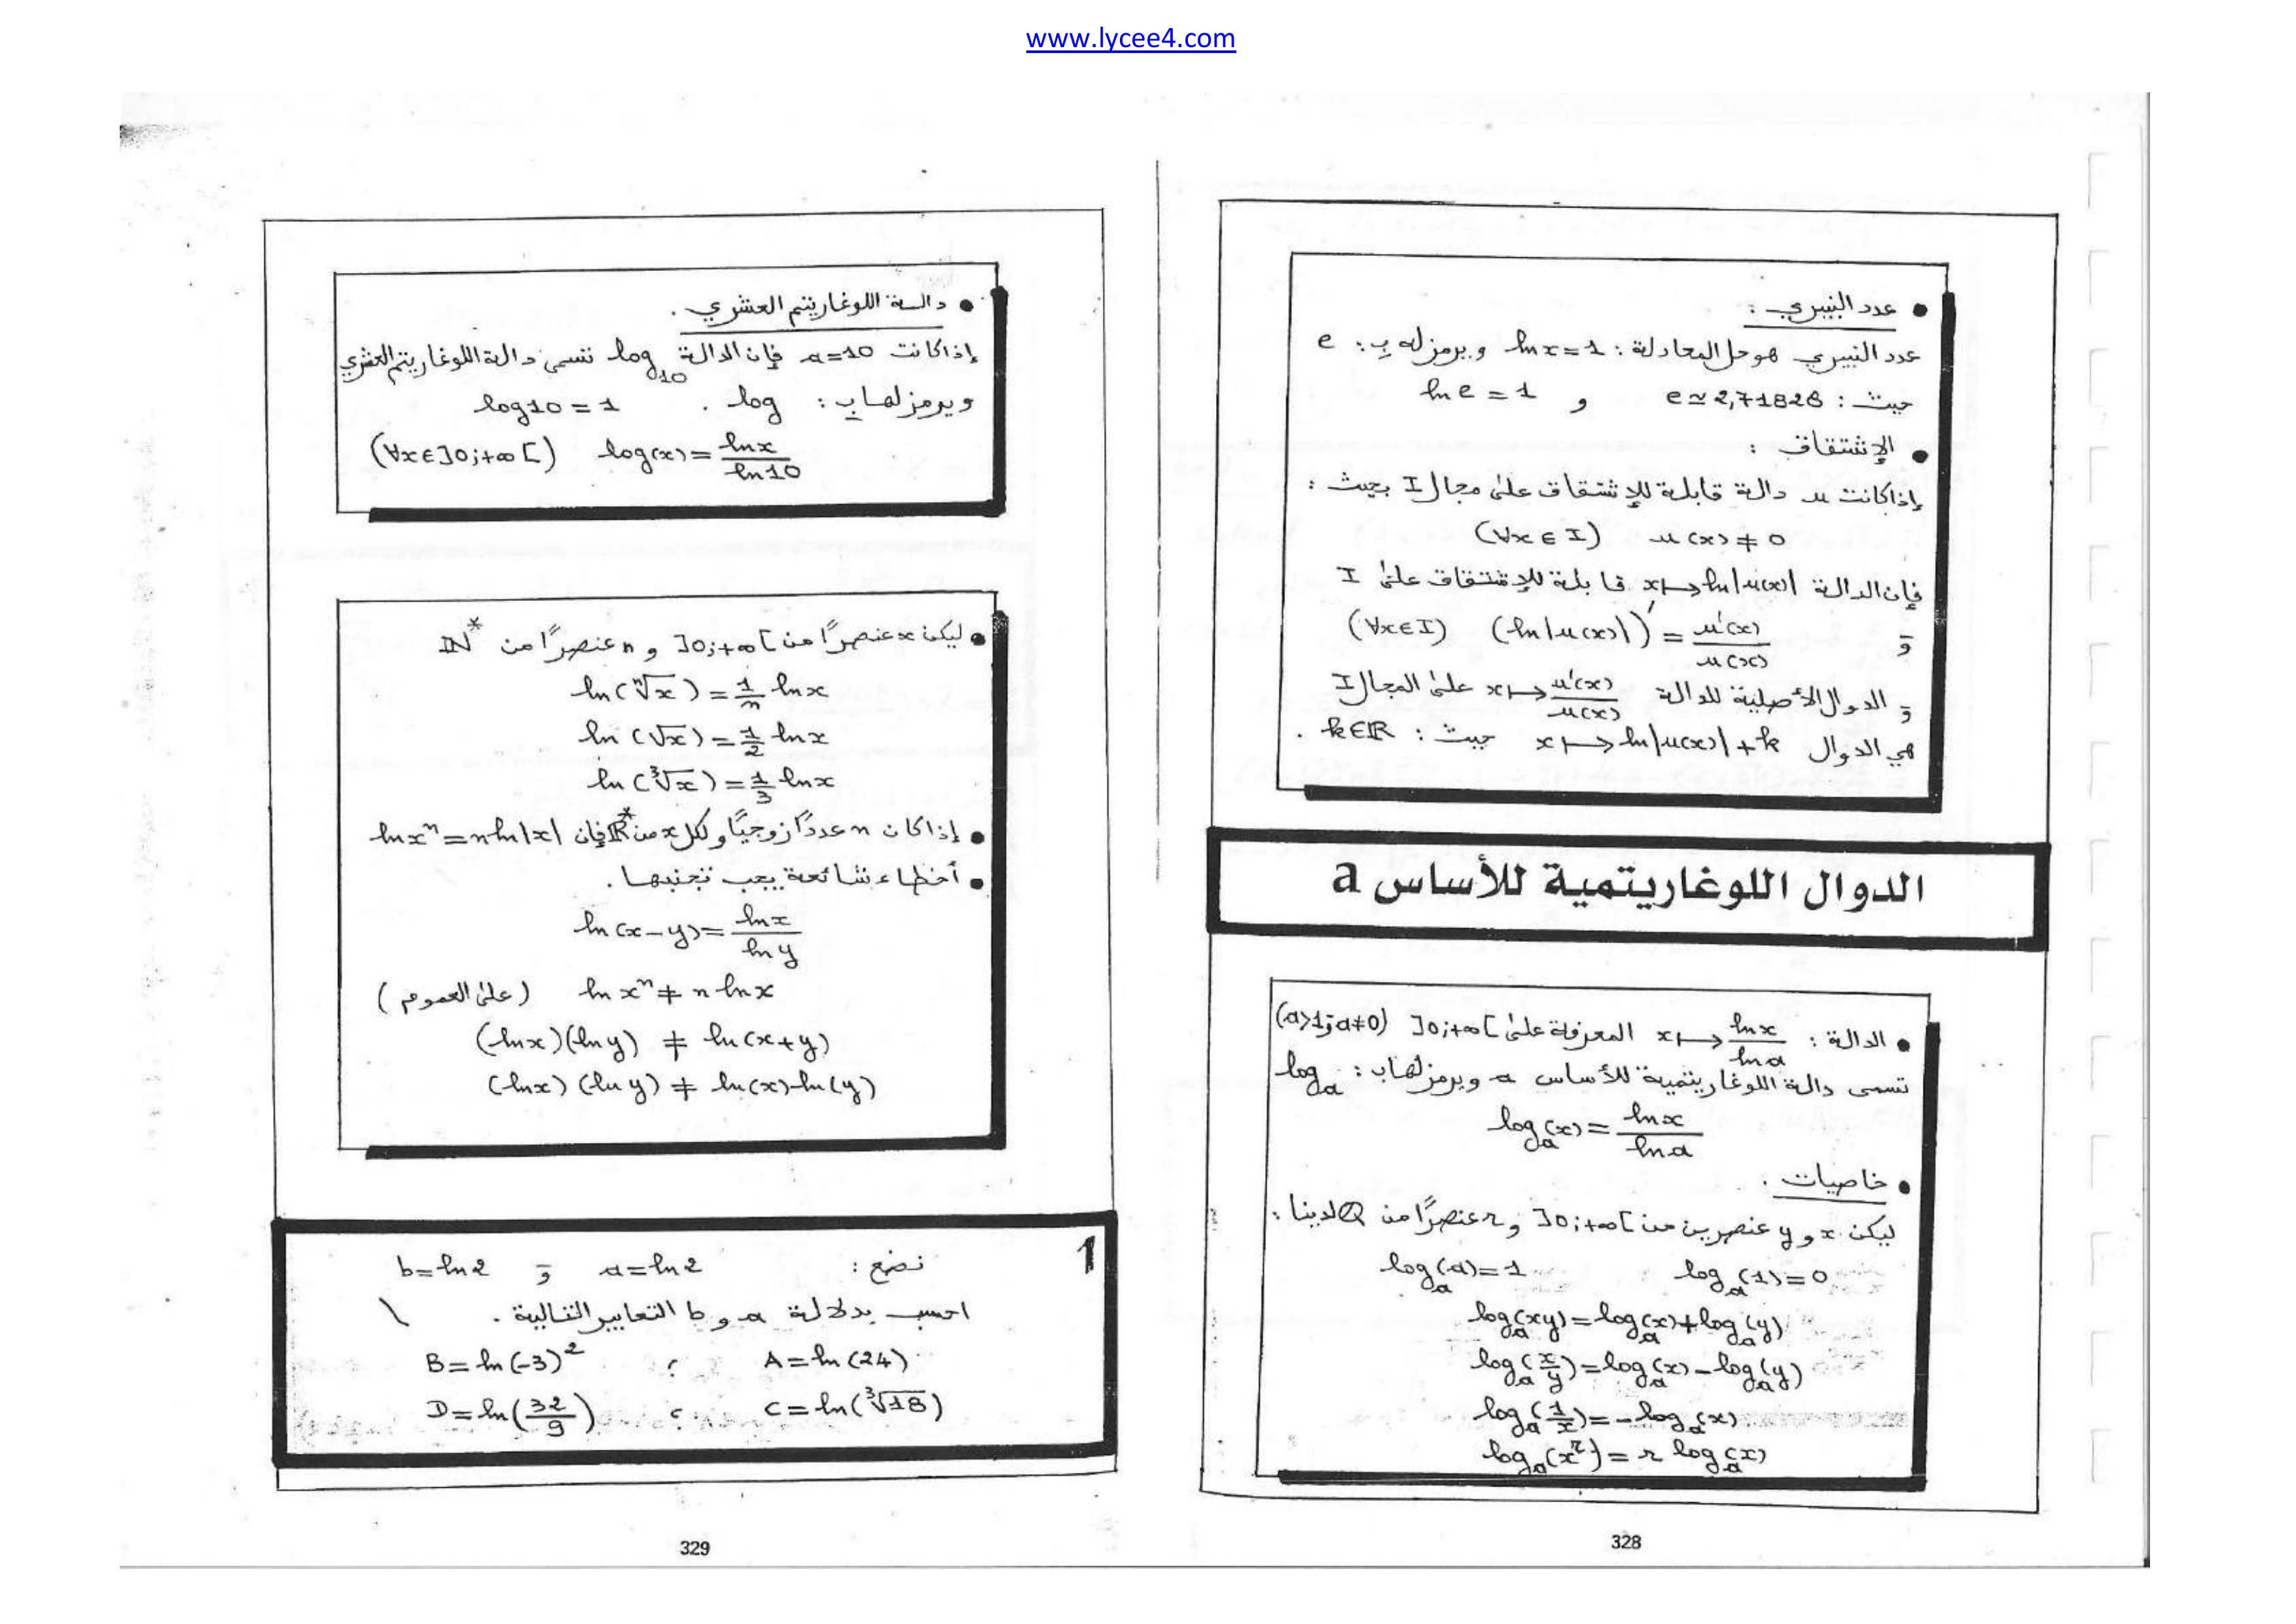 www.lycee4.com
• عدد النبيري :
عدد النبيري هو حل المعادلة : ln x = 1 و يرمز له ب : e
حيث : e ≃ 2,71828 و ln e = 1
• الإشتقاق :
إذا كانت u دالة قابلة للإشتقاق على مجال I بحيث :
(∀x ∈ I) u(x) ≠ 0
فإن الدالة x ↦ ln|u(x)| قابلة للإشتقاق على I
و (∀x∈I) (ln|u(x)|)' = u'(x)/u(x)
و الدوال الأصلية للدالة x ↦ u'(x)/u(x) على المجال I
هي الدوال x ↦ ln|u(x)| + k حيث : k∈ℝ .
الدوال اللوغاريتمية للأساس a
• الدالة : x ↦ ln x/ln a المعرفة على ]0;+∞[ (a>1 ; a≠0)
تسمى دالة اللوغاريتمية للأساس a ويرمز لها ب : log_a
log_a(x) = ln x/ln a
• خاصيات .
ليكن x و y عنصرين من ]0;+∞[ و r عنصرًا من ℚ لدينا :
log_a(1) = 0 log_a(a) = 1
log_a(xy) = log_a(x) + log_a(y)
log_a(x/y) = log_a(x) - log_a(y)
log_a(1/x) = -log_a(x)
log_a(x^r) = r log_a(x)
328
• دالة اللوغاريتم العشري .
إذا كانت a=10 فإن الدالة log_10 تسمى دالة اللوغاريتم العشري
و يرمز لها ب : log . log10 = 1
(∀x∈]0;+∞[) log(x) = ln x/ln 10
• ليكن x عنصرًا من ]0;+∞[ و n عنصرًا من ℕ*
ln(ⁿ√x) = 1/n ln x
ln(√x) = 1/2 ln x
ln(³√x) = 1/3 ln x
• إذا كان n عددًا زوجيًا و لكل x من ℝ* فإن ln xⁿ = n ln|x|
• أخطاء شائعة يجب تجنبها .
ln(x-y) = ln x/ln y
ln xⁿ ≠ n ln x (على العموم)
(ln x)(ln y) ≠ ln(x+y)
(ln x)(ln y) ≠ ln(x)-ln(y)
1
نضع : a = ln 2 و b = ln 2
احسب بدلالة a و b التعابير التالية .
A = ln(24) ; B = ln(-3)²
C = ln(³√18) ; D = ln(32/9)
329